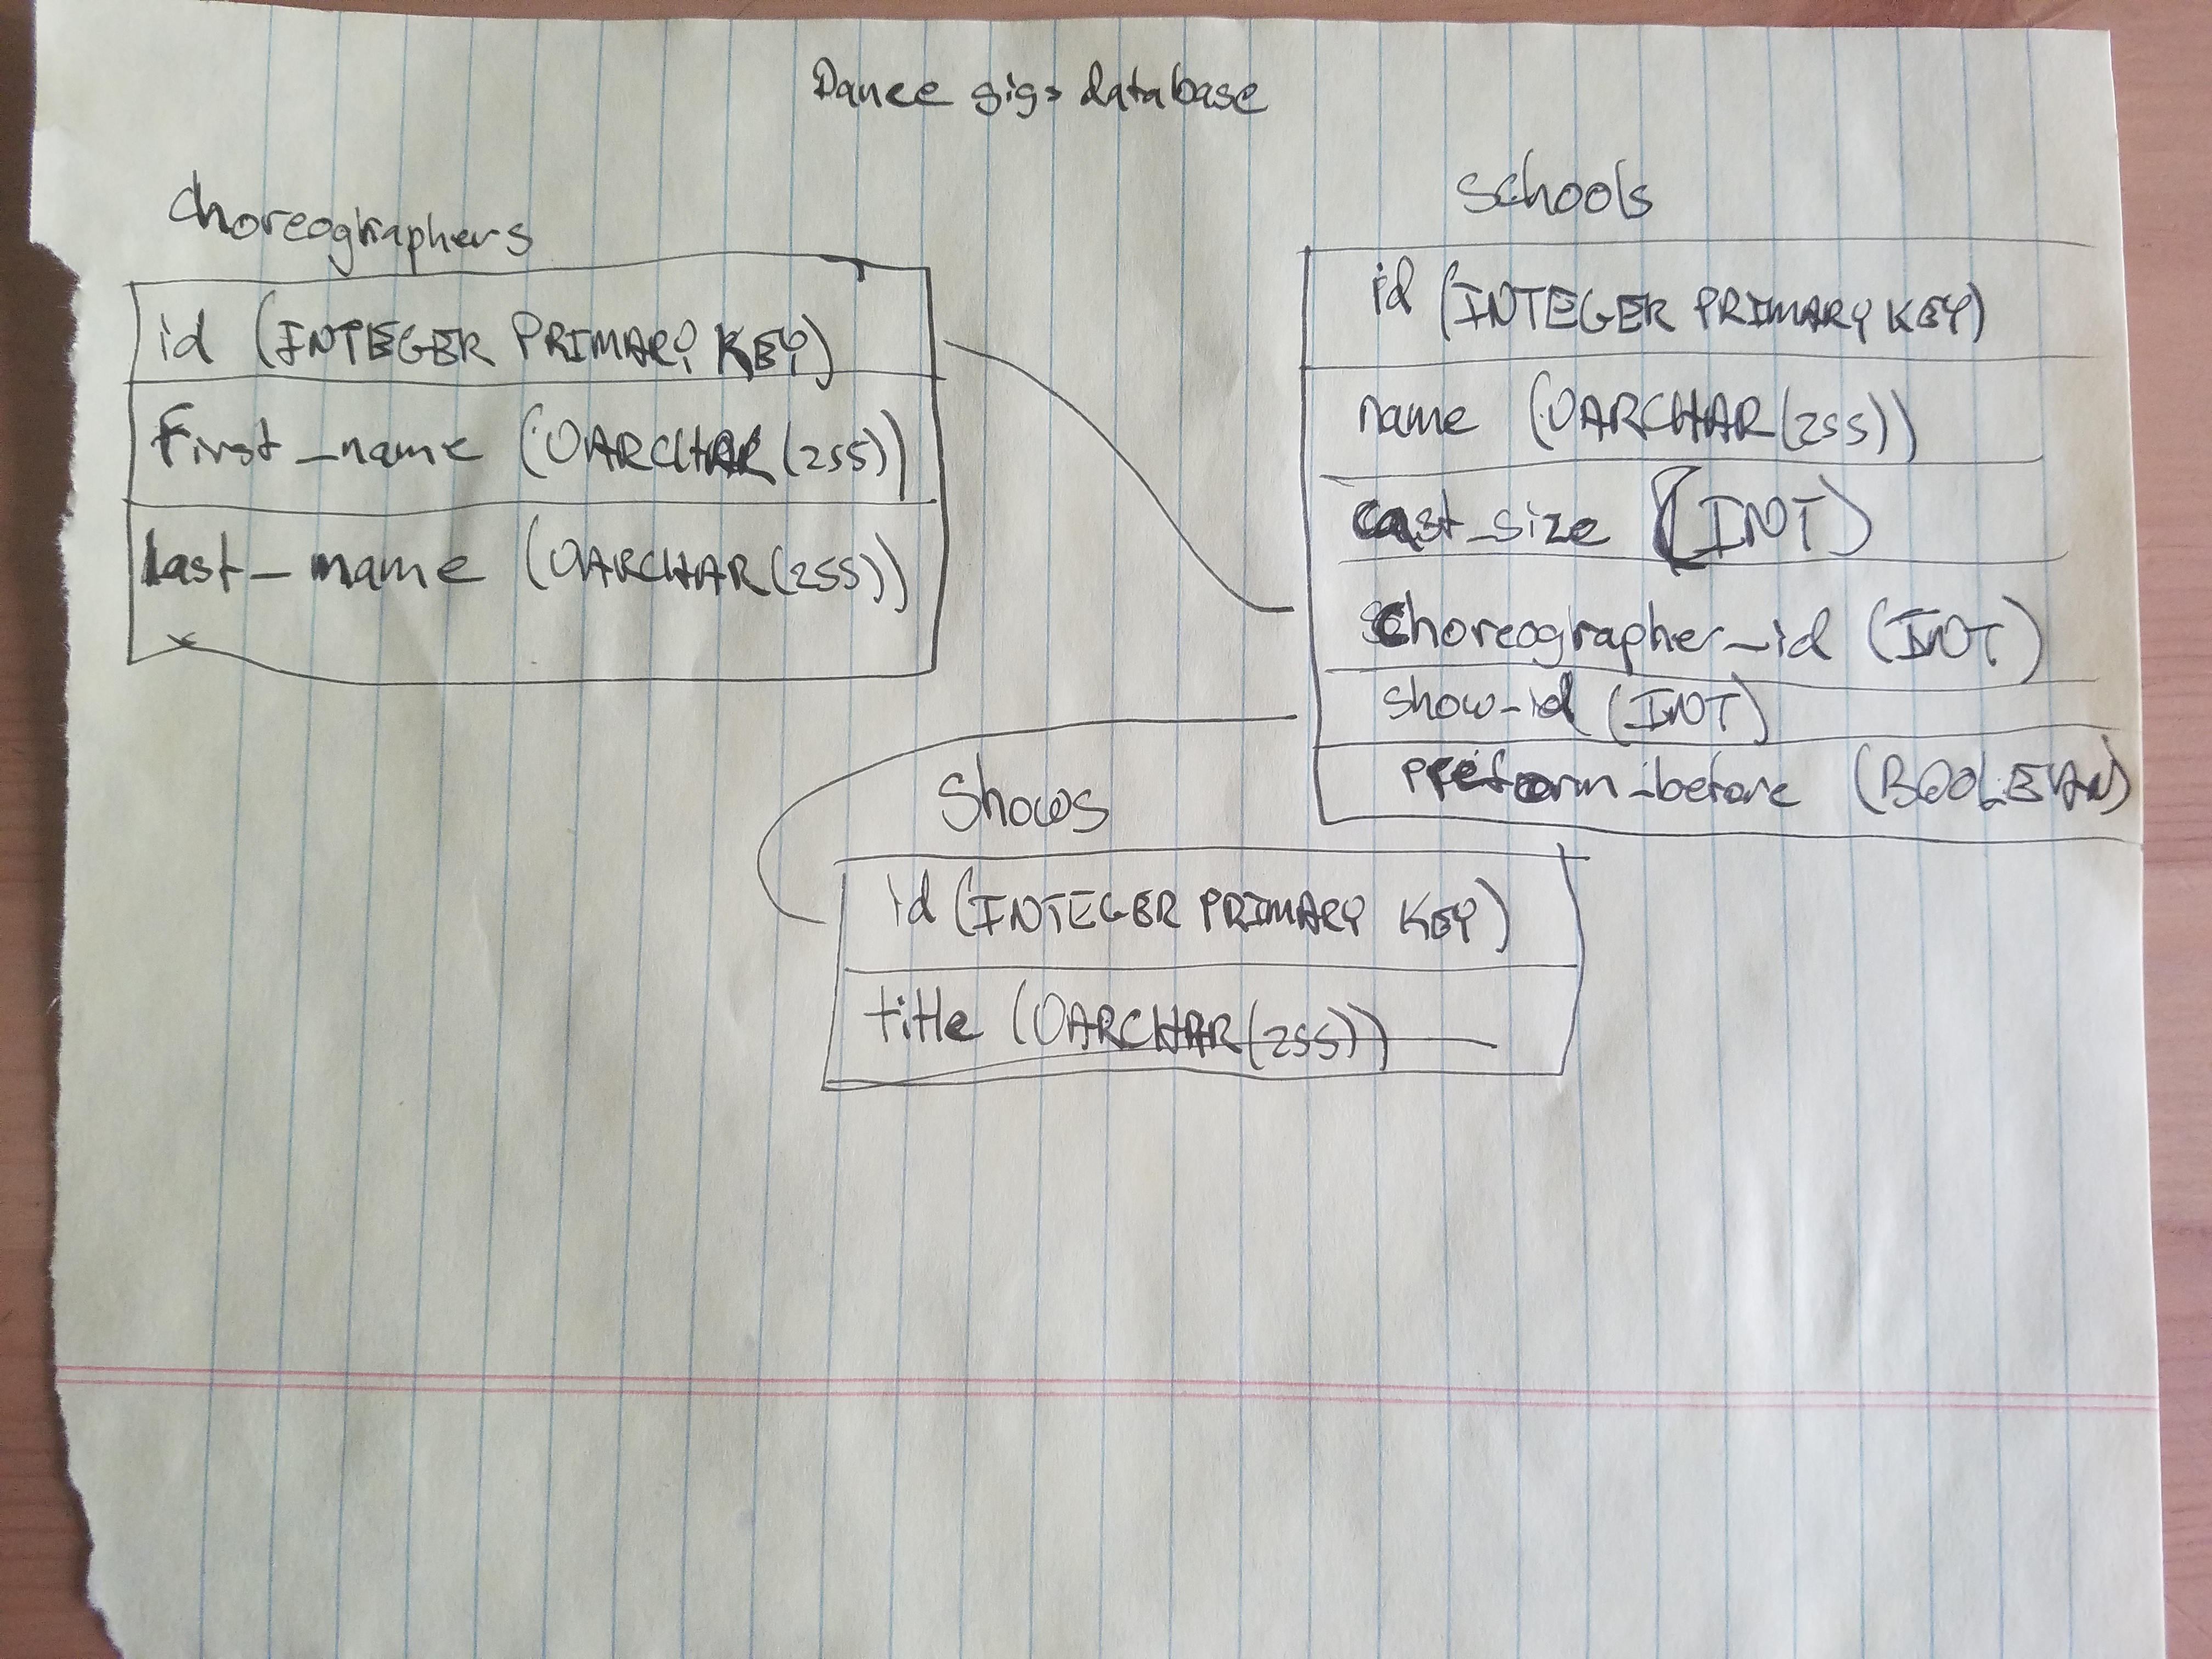 Dance gigs database
choreographers
id (INTEGER PRIMARY KEY)
first_name (VARCHAR(255))
last_name (VARCHAR(255))
Schools
id (INTEGER PRIMARY KEY)
name (VARCHAR(255))
cast_size (INT)
choreographer_id (INT)
show_id (INT)
preform_before (BOOLEAN)
Shows
id (INTEGER PRIMARY KEY)
title (VARCHAR(255))